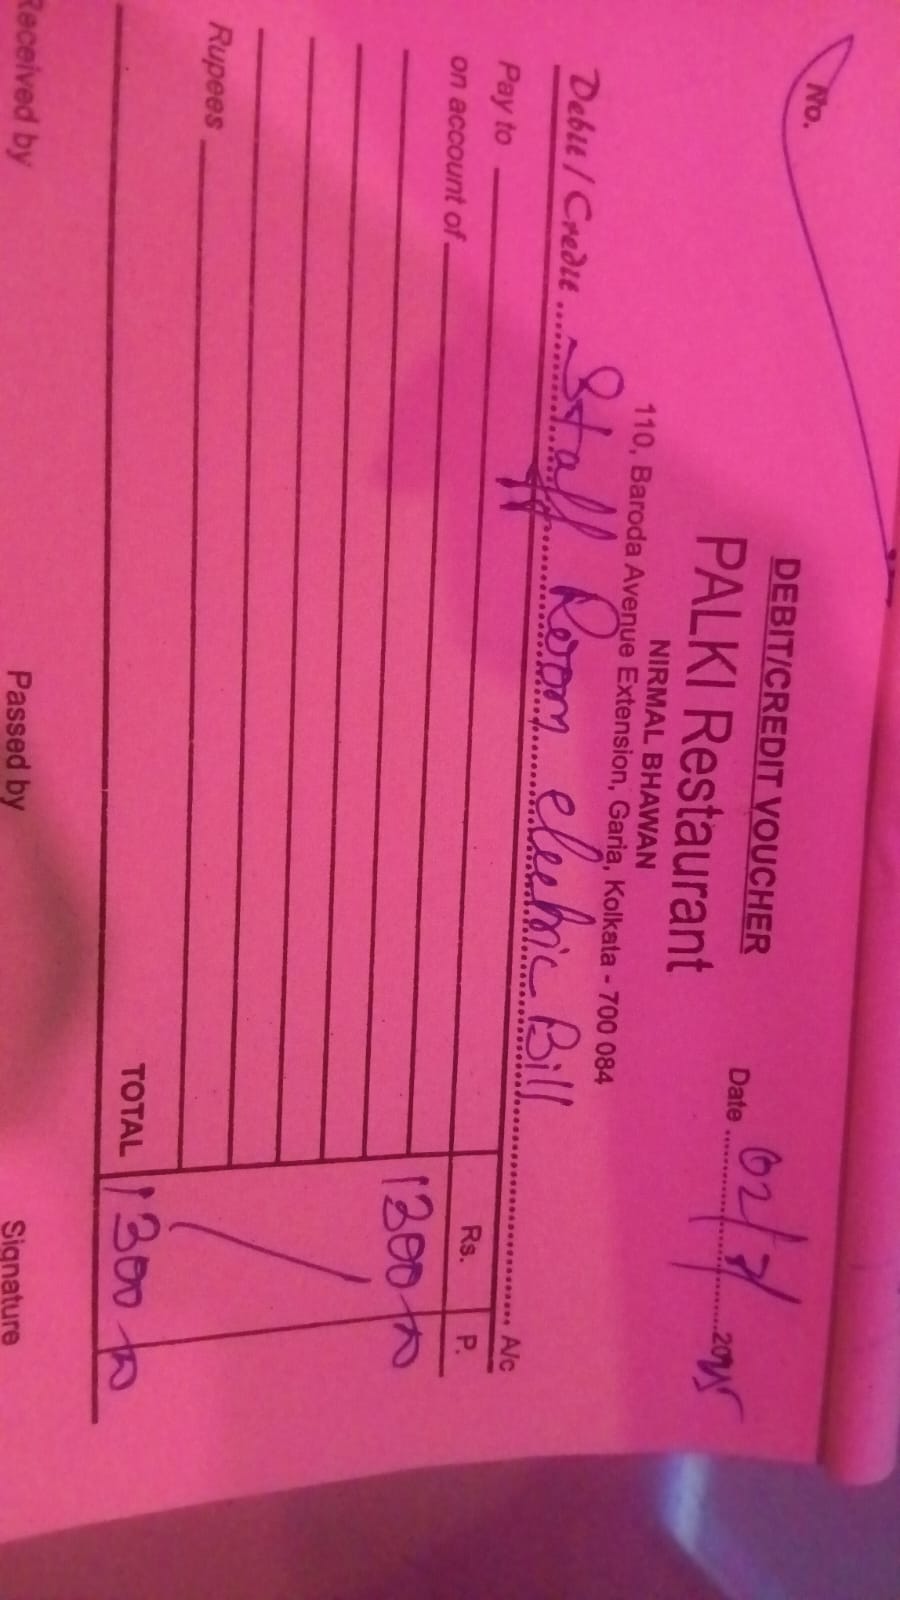 No.
DEBIT/CREDIT VOUCHER
PALKI Restaurant
NIRMAL BHAWAN
110, Baroda Avenue Extension, Garia, Kolkata - 700 084
Date 02/7/ 2025
Debit / Credit Staff Room electric Bill A/c
Pay to
on account of
Rs. P.
1300
Rupees
TOTAL 1300
Received by Passed by Signature